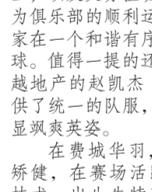 为俱乐部的顺利运
家在一个和谐有序
球。值得一提的还
越地产的赵凯杰
供了统一的队服,
显飒爽英姿。
在费城华羽,
矫健,在赛场活